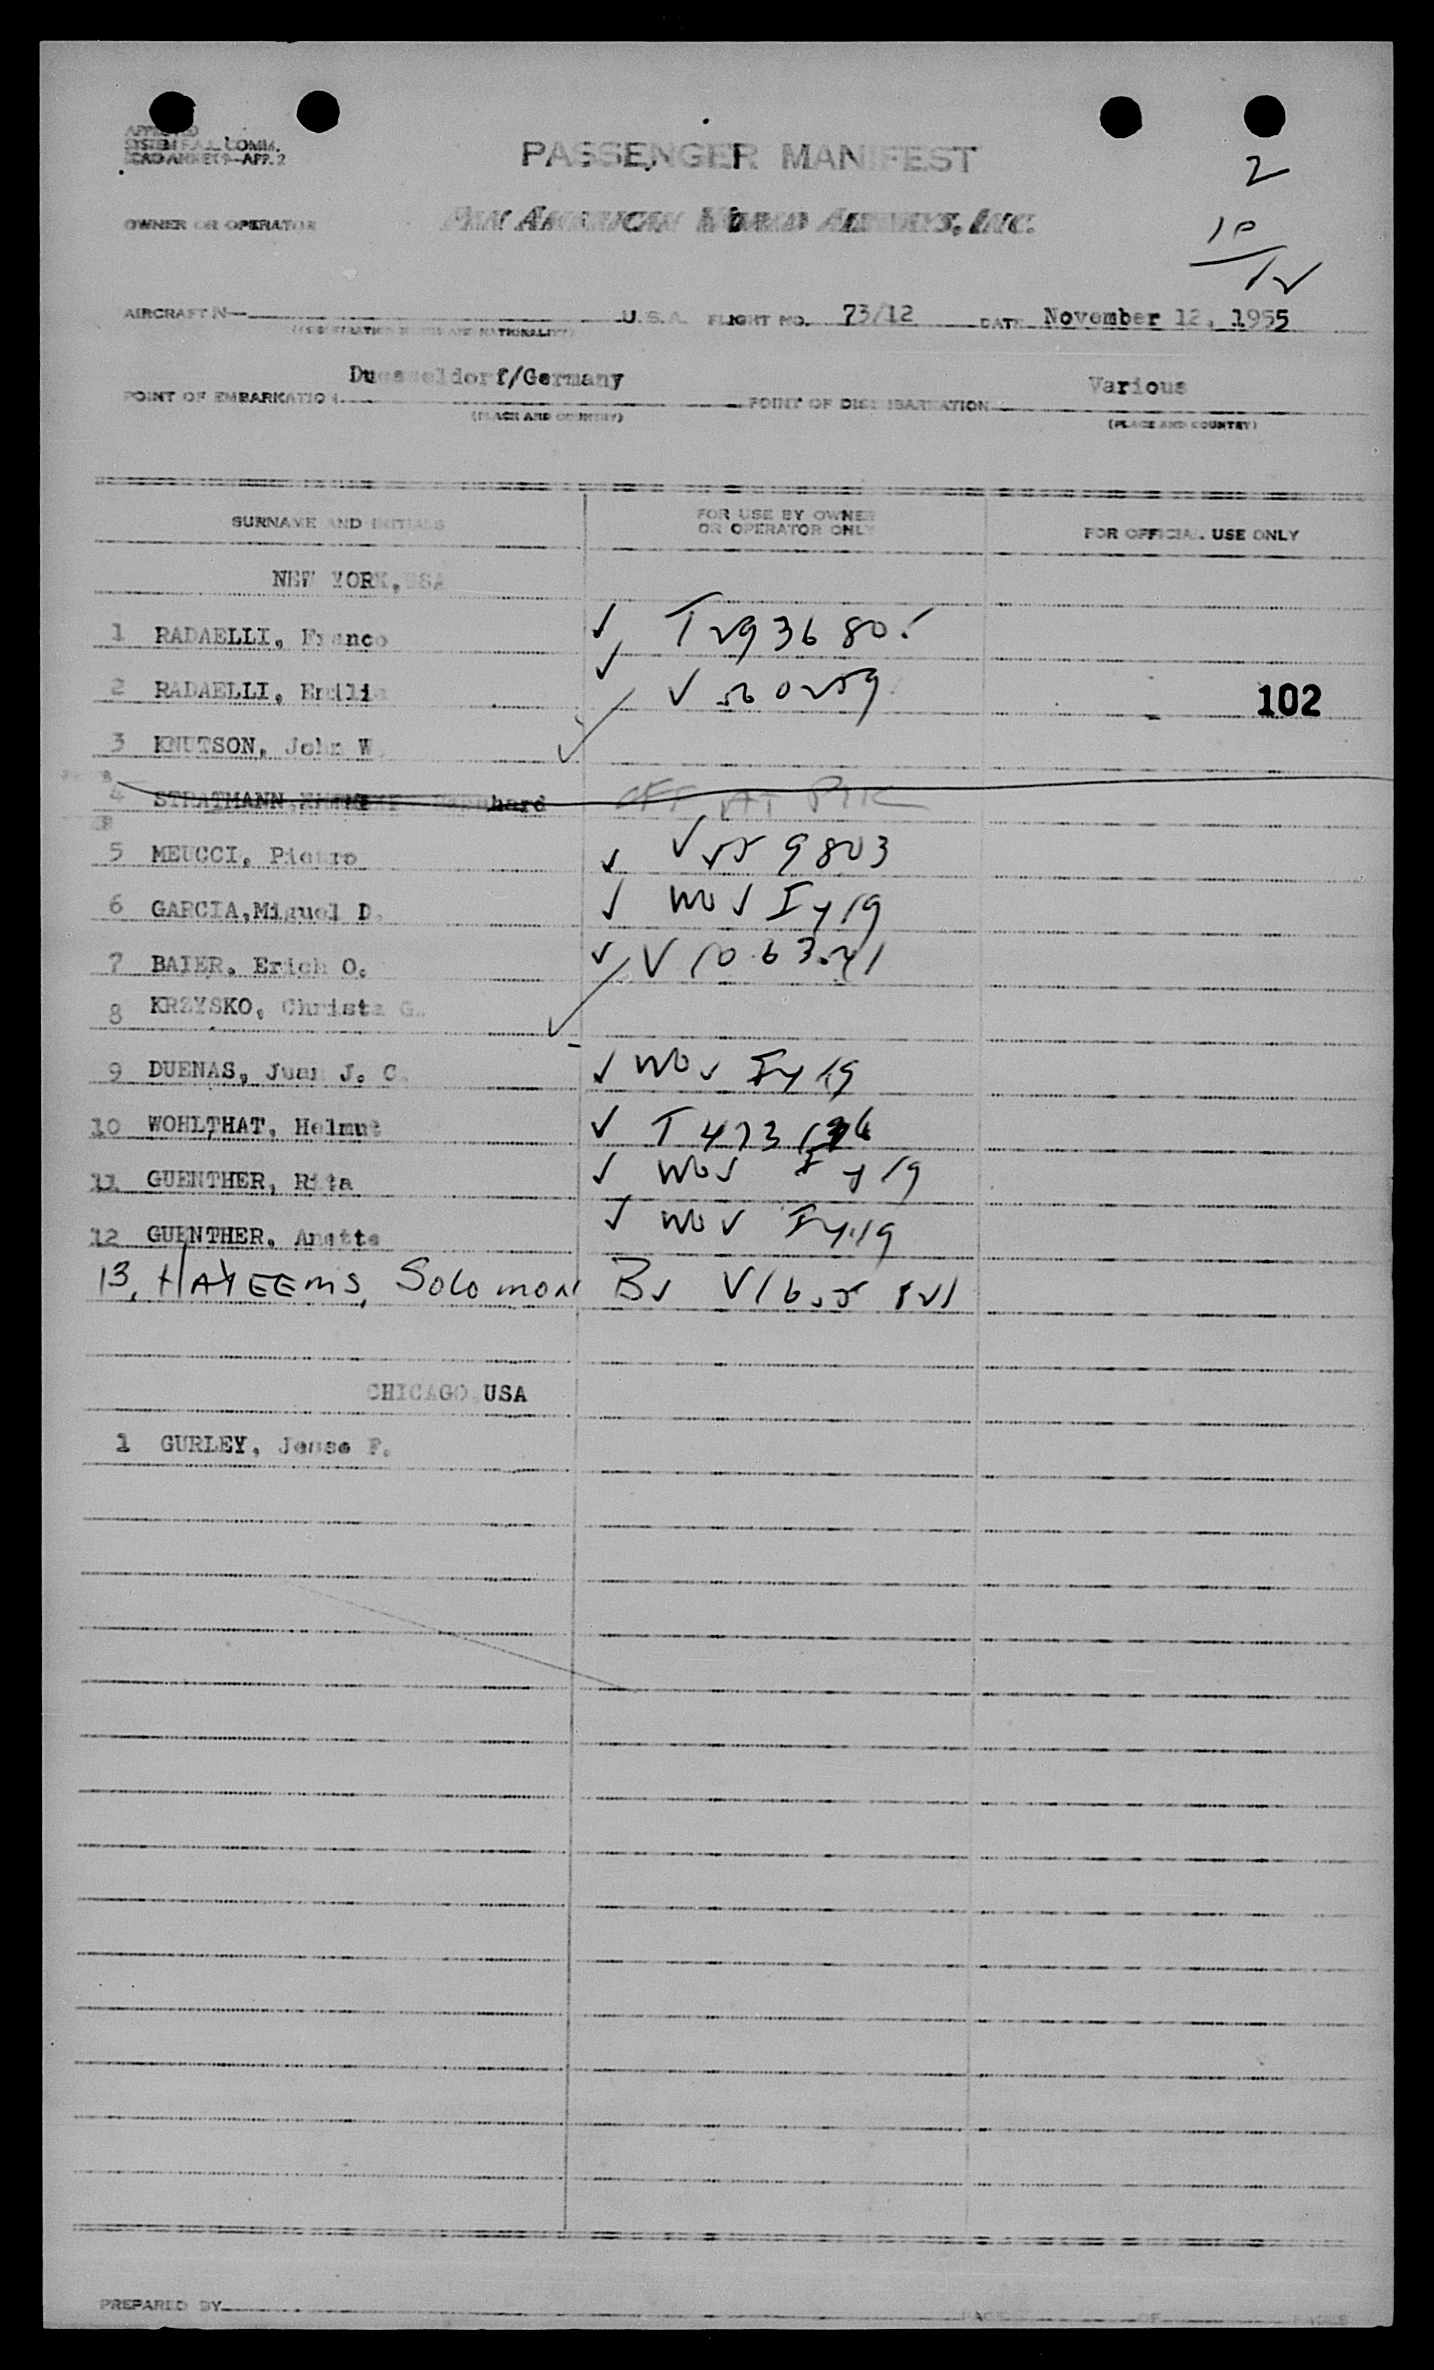 APPROVED
SYSTEM F.A.L. COMM.
ICAO ANNEX 9—APP. 2
PASSENGER MANIFEST
2
OWNER OR OPERATOR PAN AMERICAN WORLD AIRWAYS, INC.
10
12
AIRCRAFT N— U.S.A. FLIGHT NO. 73/12 DATE November 12, 1955
(REGISTRATION MARKS AND NATIONALITY)
Duesseldorf/Germany Various
POINT OF EMBARKATION POINT OF DISEMBARKATION
(PLACE AND COUNTRY) (PLACE AND COUNTRY)
SURNAME AND INITIALS FOR USE BY OWNER OR OPERATOR ONLY FOR OFFICIAL USE ONLY
NEW YORK, USA
1 RADAELLI, Franco ✓ T
2 RADAELLI, Emilia ✓ V 102
3 KNUTSON, John W. ✓
4 STRATMANN, Bernhard OFF AT PIK
5 MEUCCI, Pietro ✓ V 9803
6 GARCIA, Miguel D. ✓
7 BAIER, Erich O. ✓ V
8 KRZYSKO, Christa G. ✓
9 DUENAS, Juan J. C. ✓
10 WOHLTHAT, Helmut ✓ T
11 GUENTHER, Rita ✓
12 GUENTHER, Anette ✓
13, HAYEEMS, Solomon B ✓
CHICAGO USA
1 GURLEY, Jesse F.
PREPARED BY PAGE OF PAGES